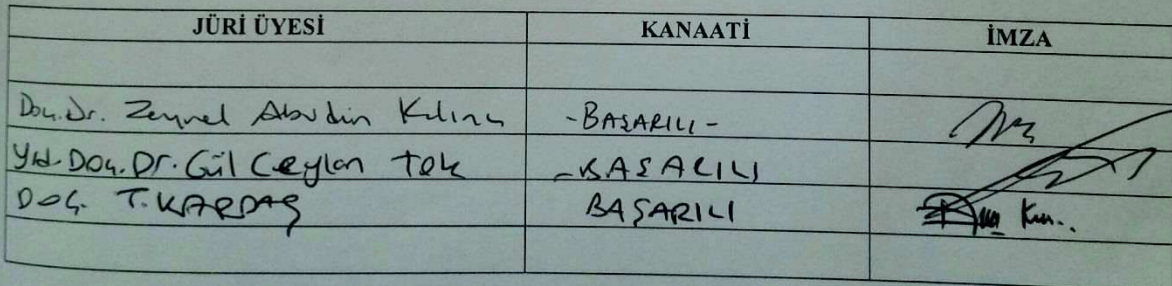 JÜRİ ÜYESİ KANAATİ İMZA
Doç. Dr. Zeynel Abidin Kılınç -BAŞARILI-
Yrd. Doç. Dr. Gül Ceylan Tok -BAŞARILI
DOÇ. T. KARDAŞ BAŞARILI